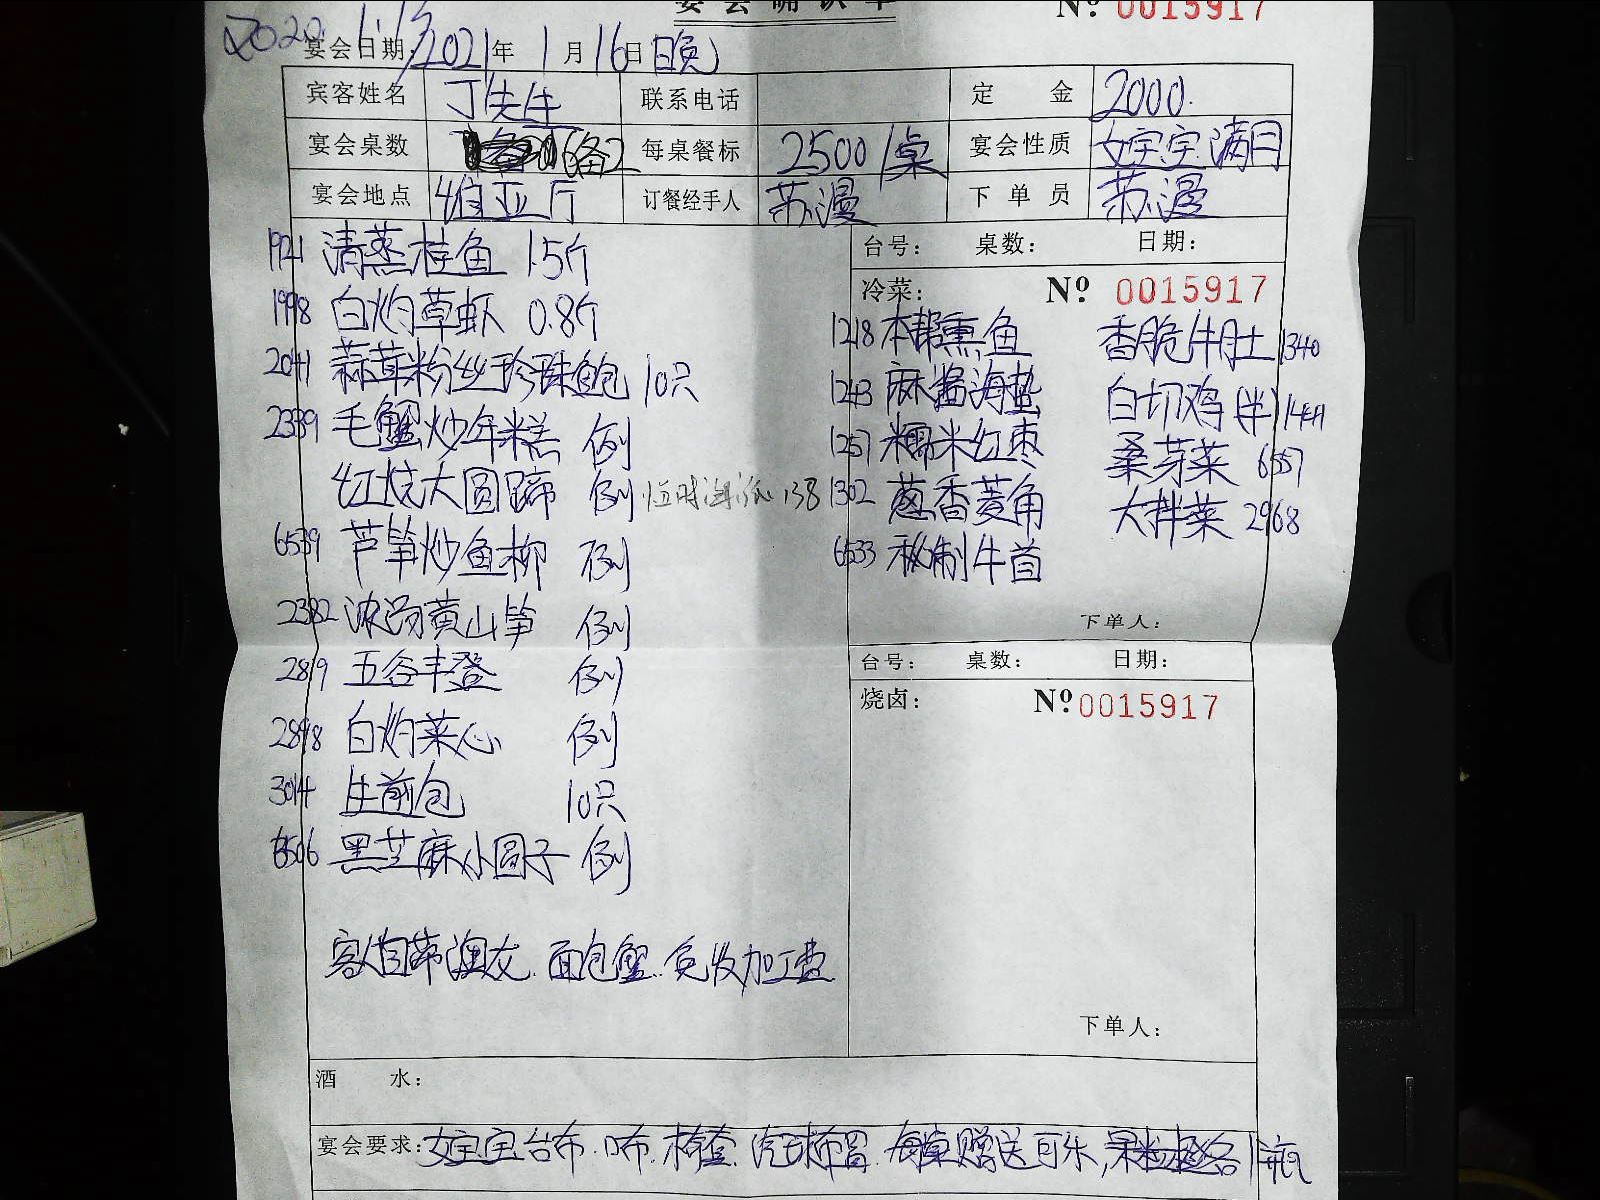 宴会确认单 № 0015917
2020. 1.13
宴会日期: 2021年 1月16日(晚)
宾客姓名 丁先生 联系电话 定金 2000.
宴会桌数 6备2 每桌餐标 2500/桌 宴会性质 女宝宝满月
宴会地点 维亚厅 订餐经手人 苏漫 下单员 苏漫
1921 清蒸桂鱼 1.5斤
1998 白灼草虾 0.8斤
2041 蒜茸粉丝珍珠鲍 10只
2339 毛蟹炒年糕 例
红烧大圆蹄 例 138
6539 芦笋炒鱼柳 例
2382 浓汤黄山笋 例
2819 五谷丰登 例
2898 白灼菜心 例
3014 生煎包 10只
6506 黑芝麻小圆子 例
客人自带澳龙.面包蟹.免收加工费
台号: 桌数: 日期:
冷菜: № 0015917
1218 本帮熏鱼 香脆牛肚 1340
1243 麻酱海蛰 白切鸡(半) 1441
1257 糯米红枣 桑芽菜 6557
1302 葱香菱角 大拌菜 2968
6533 秘制牛首
下单人:
台号: 桌数: 日期:
烧卤: № 0015917
下单人:
酒水:
宴会要求: 女宝宝台布.口布.椅套.气球布置.每桌赠送可乐,果粒橙各1瓶